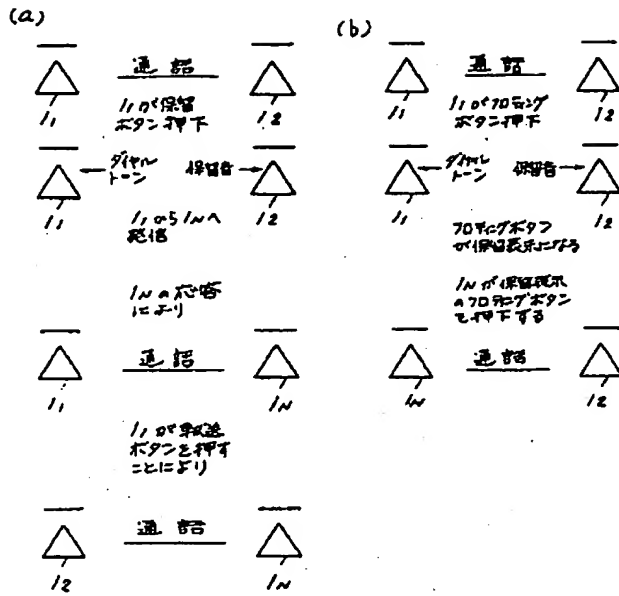 (a)
通話
1₁
1₂
1₁が保留
ボタン押下
ダイヤル
トーン
保留音
1₁
1₂
1₁から1Nへ
発信
1Nの応答
により
通話
1₁
1N
1₁が転送
ボタンを押す
ことにより
通話
1₂
1N
(b)
通話
1₁
1₂
1₁がフロティング
ボタン押下
ダイヤル
トーン
保留音
1₁
1₂
フロティングボタン
が保留表示になる
1Nが保留表示
のフロティングボタン
を押下する
通話
1N
1₂